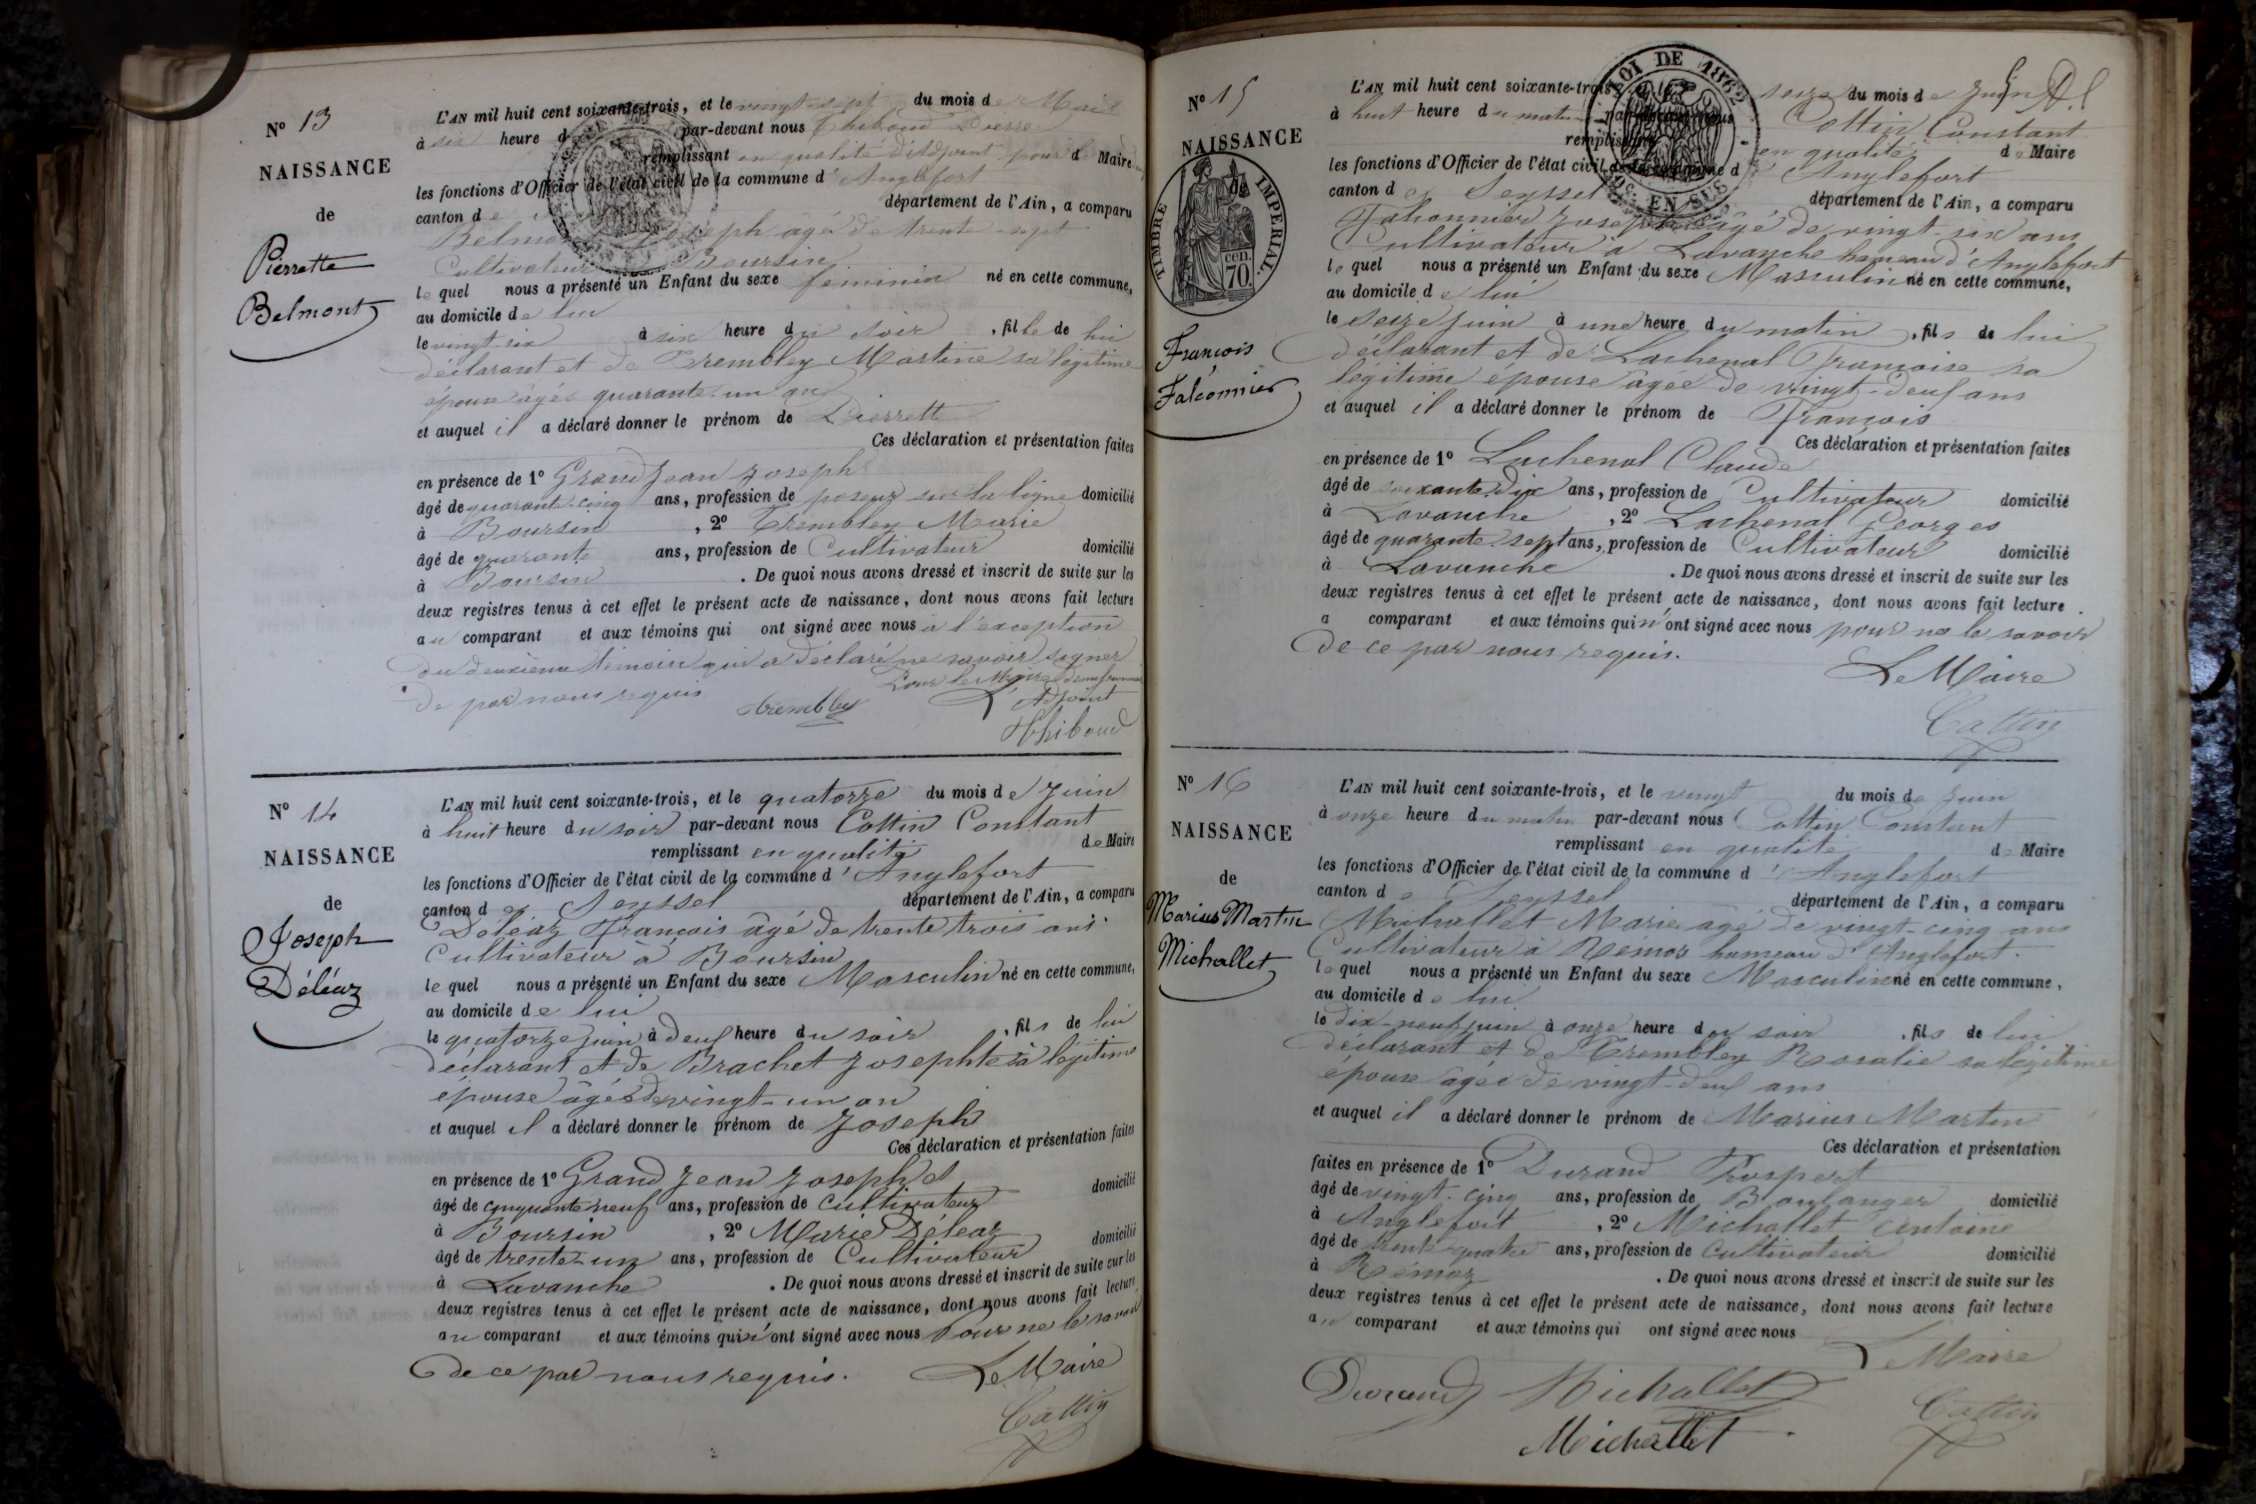 N° 13
NAISSANCE
de
Pierrette
Belmont
L'AN mil huit cent soixante-trois, et le vingt-sept du mois de Mai
à six heure d par-devant nous Thiboud Pierre
remplissant en qualité d'Adjoint pour le d Maire
les fonctions d'Officier de l'état civil de la commune d'Anglefort
canton de département de l'Ain, a comparu
Joseph âgé de trente-sept
Cultivateur Boursin
le quel nous a présenté un Enfant du sexe féminin né en cette commune,
au domicile de lui
le vingt-six à six heure du soir, fille de lui
déclarant et de Trembley Martine sa légitime
épouse âgée quarante-un an
et auquel il a déclaré donner le prénom de Pierrette
Ces déclaration et présentation faites
en présence de 1° Grand Jean Joseph
âgé de quarante-cinq ans, profession de poseur sur la ligne domicilié
à Boursin, 2° Trembley Marie
âgé de quarante ans, profession de Cultivateur domicilié
à Boursin. De quoi nous avons dressé et inscrit de suite sur les
deux registres tenus à cet effet le présent acte de naissance, dont nous avons fait lecture
au comparant et aux témoins qui ont signé avec nous à l'exception
du deuxième témoin qui a déclaré ne savoir signer
de par nous requis Pour le Maire
Trembley L'Adjoint
Thiboud
N° 14
NAISSANCE
de
Joseph
Déléaz
L'AN mil huit cent soixante-trois, et le quatorze du mois de Juin
à huit heure du soir par-devant nous Cottin Constant
remplissant en qualité de Maire
les fonctions d'Officier de l'état civil de la commune d'Anglefort
canton de Seyssel département de l'Ain, a comparu
Déléaz François âgé de trente trois ans
Cultivateur à Boursin
le quel nous a présenté un Enfant du sexe Masculin né en cette commune,
au domicile de lui
le quatorze juin à deux heure du soir, fils de lui
déclarant et de Brachet Josephte sa légitime
épouse âgée de vingt-un an
et auquel il a déclaré donner le prénom de Joseph
Ces déclaration et présentation faites
en présence de 1° Grand Jean Joseph
âgé de cinquante neuf ans, profession de cultivateur domicilié
à Boursin, 2° Marie Déléaz
âgé de trente-un ans, profession de Cultivateur domicilié
à Lavanche. De quoi nous avons dressé et inscrit de suite sur les
deux registres tenus à cet effet le présent acte de naissance, dont nous avons fait lecture
au comparant et aux témoins qui n'ont signé avec nous Pour ne le savoir
de ce par nous requis. Le Maire
Cottin
N° 15
NAISSANCE
TIMBRE IMPERIAL.
cen. 70.
François
Falconnier
LOI DE 1862
EN SUS
L'AN mil huit cent soixante-trois seize du mois de Juin
à huit heure du matin par-devant nous Cottin Constant
remplissant en qualité de Maire
les fonctions d'Officier de l'état civil de la commune d'Anglefort
canton de Seyssel département de l'Ain, a comparu
Falconnier Joseph âgé de vingt-six ans
Cultivateur à Lavanche hameau d'Anglefort
le quel nous a présenté un Enfant du sexe Masculin né en cette commune,
au domicile de lui
le seize juin à une heure du matin, fils de lui
déclarant et de Lachenal Françoise sa
légitime épouse âgée de vingt-deux ans
et auquel il a déclaré donner le prénom de François
Ces déclaration et présentation faites
en présence de 1° Lachenal Claude
âgé de soixante-dix ans, profession de Cultivateur domicilié
à Lavanche, 2° Lachenal Georges
âgé de quarante-sept ans, profession de Cultivateur domicilié
à Lavanche. De quoi nous avons dressé et inscrit de suite sur les
deux registres tenus à cet effet le présent acte de naissance, dont nous avons fait lecture
a comparant et aux témoins qui n'ont signé avec nous pour ne le savoir
de ce par nous requis.
Le Maire
Cottin
N° 16
NAISSANCE
de
Marius Martin
Michallet
L'AN mil huit cent soixante-trois, et le vingt du mois de Juin
à onze heure du matin par-devant nous Cottin Constant
remplissant en qualité de Maire
les fonctions d'Officier de l'état civil de la commune d'Anglefort
canton de Seyssel département de l'Ain, a comparu
Michallet Marie âgé de vingt-cinq ans
Cultivateur à Rémoz hameau d'Anglefort.
le quel nous a présenté un Enfant du sexe Masculin né en cette commune,
au domicile de lui
le dix-neuf juin à onze heure du soir, fils de lui
déclarant et de Trembley Rosalie sa légitime
épouse âgée de vingt-deux ans
et auquel il a déclaré donner le prénom de Marius Martin
Ces déclaration et présentation
faites en présence de 1° Durand Prospert
âgé de vingt-cinq ans, profession de Boulanger domicilié
à Anglefort, 2° Michallet Antoine
âgé de trente-quatre ans, profession de Cultivateur domicilié
à Rémoz. De quoi nous avons dressé et inscrit de suite sur les
deux registres tenus à cet effet le présent acte de naissance, dont nous avons fait lecture
au comparant et aux témoins qui ont signé avec nous
Le Maire
Durand Michallet Cottin
Michallet